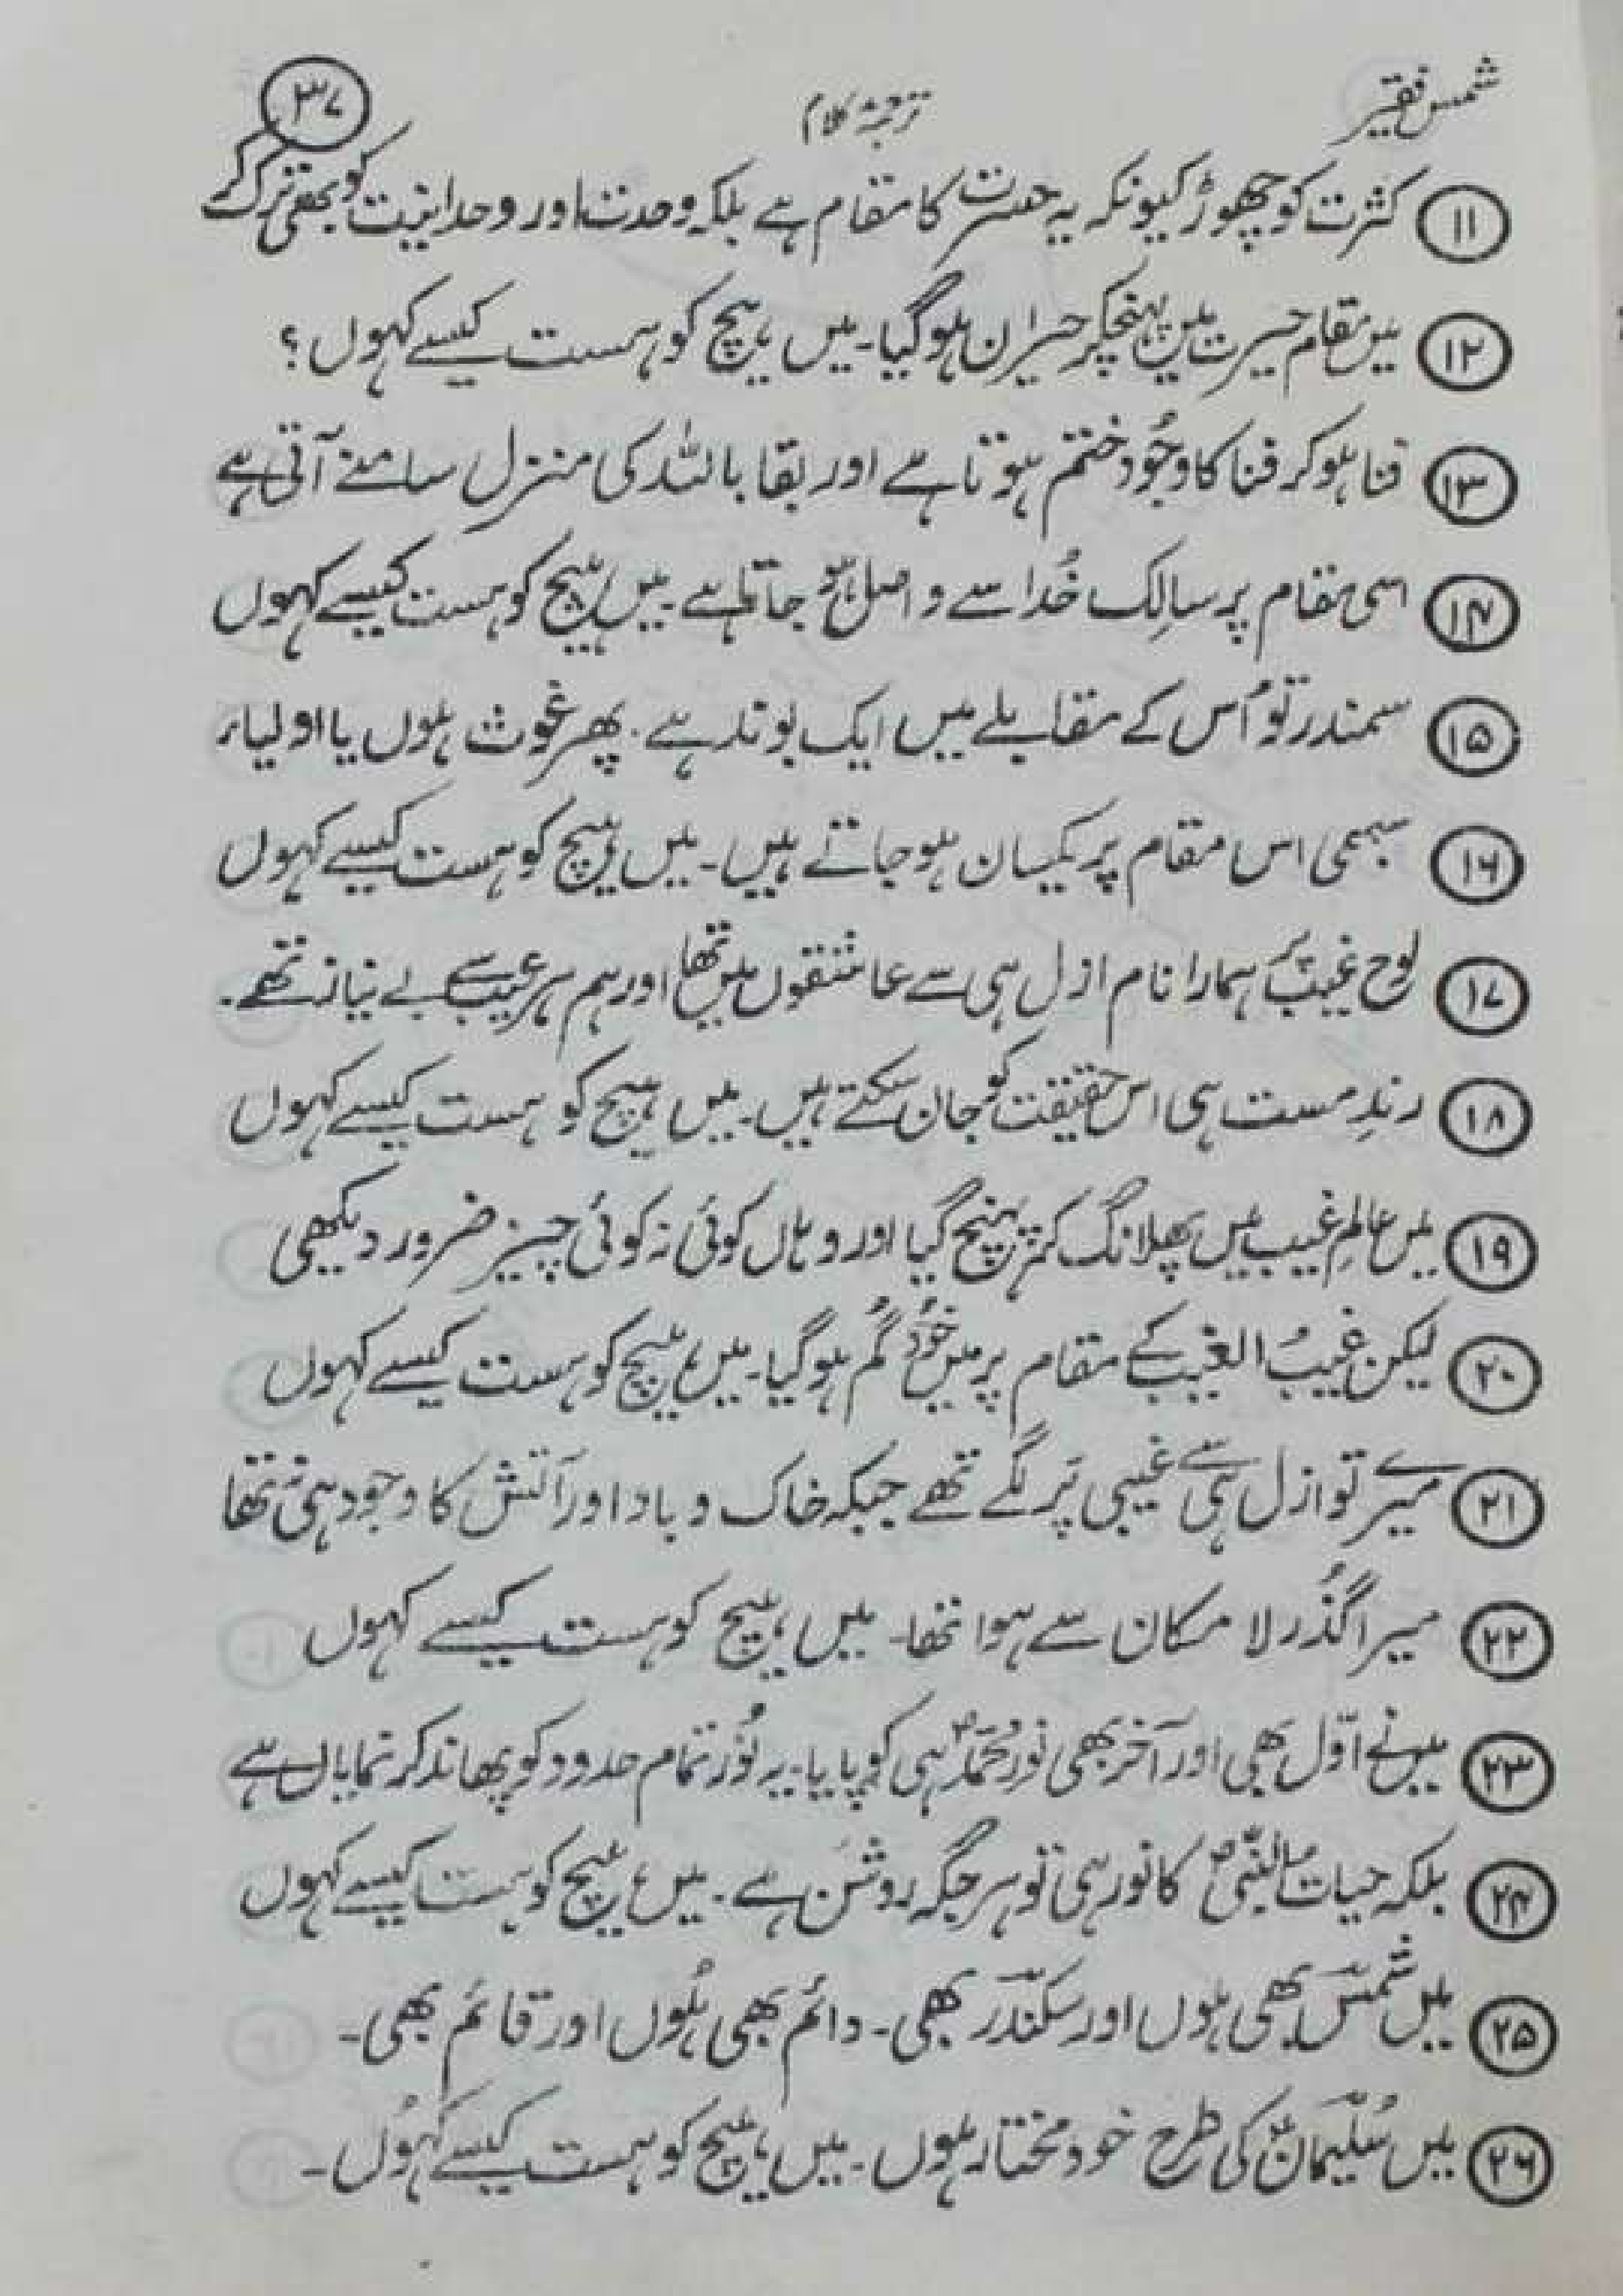 شمس فقیر
ترجمہ کلام
۳۷
۱۱ کثرت کو چھوڑ کیونکہ یہ حسرت کا مقام ہے بلکہ وحدت اور وحدانیت کو بھی ترک کر
۱۲ میں مقام حیرت میں پہنچکر حیران ہو گیا۔ میں ہیچ کو ہست کیسے کہوں؟
۱۳ فنا ہو کر فنا کا وجُود ختم ہوتا ہے اور بقا باللہ کی منزل سامنے آتی ہے
۱۴ اسی مقام پر سالِک خُدا سے واصل ہو جاتا ہے۔ میں ہیچ کو ہست کیسے کہوں
۱۵ سمندر تو اُس کے مقابلے میں ایک بوند ہے۔ پھر غوث ہوں یا اولیاء
۱۶ سبھی اس مقام پر یکسان ہو جاتے ہیں۔ میں ہیچ کو ہست کیسے کہوں
۱۷ لوحِ غیب پر ہمارا نام ازل ہی سے عاشقوں میں تھا اور ہم ہر عیب سے بے نیاز تھے۔
۱۸ رندِ مست ہی اس حقیقت کو جان سکتے ہیں۔ میں ہیچ کو ہست کیسے کہوں
۱۹ میں عالمِ غیب میں پھلانگ کر پہنچ گیا اور وہاں کوئی نہ کوئی چیز ضرور دیکھی
۲۰ لیکن غیبُ الغیب کے مقام پر میں خُود گُم ہو گیا۔ میں ہیچ کو ہست کیسے کہوں
۲۱ میرے تو ازل ہی سے غیبی پَر لگے تھے جبکہ خاک و باد اور آتش کا وجود ہی نہ تھا
۲۲ میرا گُذر لا مکان سے ہوا تھا۔ میں ہیچ کو ہست کیسے کہوں
۲۳ میں نے اوّل بھی اور آخر بھی نورِ محمدؐ ہی کو پایا۔ یہ نُور تمام حدود کو پھاند کر نمایاں ہے
۲۴ بلکہ حیات النبیؐ کا نور ہی تو ہر جگہ روشن ہے۔ میں ہیچ کو ہست کیسے کہوں
۲۵ میں شمس بھی ہوں اور سکندر بھی۔ دائم بھی ہُوں اور قائم بھی۔
۲۶ میں سُلیمانؑ کی طرح خود مختار ہوں۔ میں ہیچ کو ہست کیسے کہُوں۔